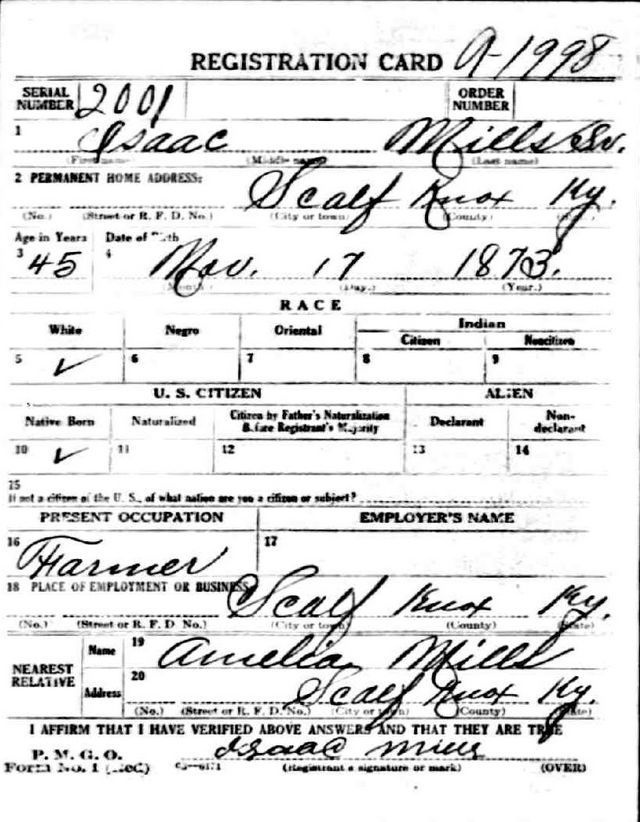 REGISTRATION CARD A-1998
SERIAL NUMBER 2001 ORDER NUMBER
1 Isaac Mills Sr.
(First name) (Middle name) (Last name)
2 PERMANENT HOME ADDRESS: Scalf Knox Ky.
(No.) (Street or R. F. D. No.) (City or town) (County)
Age in Years Date of Birth
3 45 4 Nov. 17 1873.
(Month) (Day.) (Year.)
RACE
White Negro Oriental Indian
Citizen Noncitizen
5 ✓ 6 7 8 9
U. S. CITIZEN ALIEN
Native Born Naturalized Citizen by Father's Naturalization Before Registrant's Majority Declarant Non-declarant
10 ✓ 11 12 13 14
15
If not a citizen of the U. S., of what nation are you a citizen or subject?
PRESENT OCCUPATION EMPLOYER'S NAME
16 Farmer 17
18 PLACE OF EMPLOYMENT OR BUSINESS: Scalf Knox Ky.
(No.) (Street or R. F. D. No.) (City or town) (County) (State)
NEAREST RELATIVE Name 19 Amelia Mills
Address 20 Scalf Knox Ky.
(No.) (Street or R. F. D. No.) (City or town) (County) (State)
I AFFIRM THAT I HAVE VERIFIED ABOVE ANSWERS AND THAT THEY ARE TRUE
P. M. G. O. Isaac Mills
Form No. 1 (Red) (Registrant's signature or mark) (OVER)